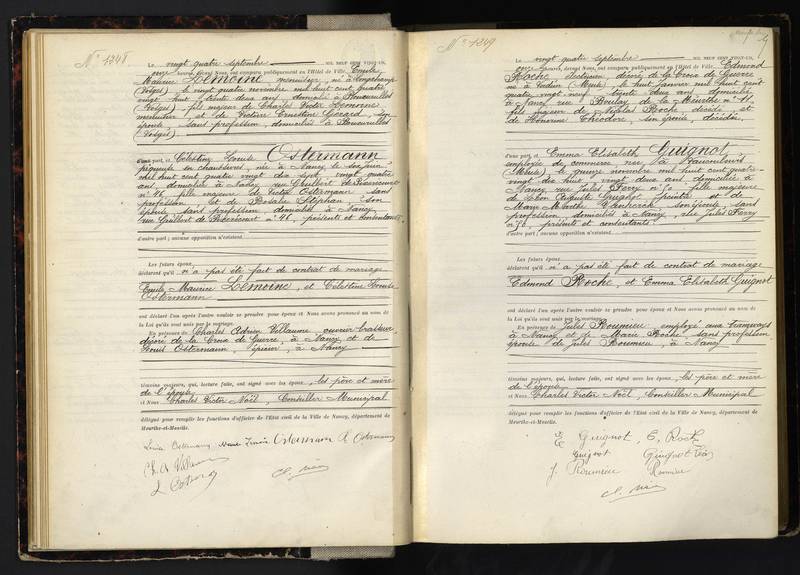 N° 1248
Le vingt quatre septembre MIL NEUF CENT VINGT-UN,
onze heures, devant Nous, ont comparu publiquement en l'Hôtel de Ville, Emile
Maurice LEMOINE, menuisier, né à
(Vosges), le vingt quatre novembre mil huit cent quatre
vingt huit, trente deux ans, domicilié à
(Vosges), fils majeur de Charles Victor Lemoine
menuisier, et de Victoire Ernestine Gérard, son
épouse, sans profession, domiciliés à
(Vosges)
d'une part, et Célestine Louise OSTERMANN
piqueuse en chaussures, née à Nancy, le six juin
mil huit cent quatre vingt dix sept, vingt quatre
ans, domiciliée à Nancy, rue Guilbert de Pixerécourt
n° 46, fille majeure de Victor Ostermann, sans
profession, et de Rosalie Stéphan, son
épouse, sans profession, domiciliés à Nancy,
rue Guilbert de Pixerécourt n° 46, présents et consentants
d'autre part; aucune opposition n'existant.
Les futurs époux
déclarent qu'il n'a pas été fait de contrat de mariage
Emile Maurice LEMOINE, et Célestine Louise
OSTERMANN
ont déclaré l'un après l'autre vouloir se prendre pour époux et Nous avons prononcé au nom de
la Loi qu'ils sont unis par le mariage.
En présence de Charles Adrien Villaume, ouvrier brasseur,
décoré de la Croix de Guerre, à Nancy, et de
Louis Ostermann, épicier, à Nancy
témoins majeurs, qui, lecture faite, ont signé avec les époux, les père et mère
de l'épouse
et Nous Charles Victor Noël, Conseiller Municipal
délégué pour remplir les fonctions d'officier de l'Etat civil de la Ville de Nancy, département de
Meurthe-et-Moselle.
Ostermann
N° 1249
Le vingt quatre septembre MIL NEUF CENT VINGT-UN,
onze heures, devant Nous, ont comparu publiquement en l'Hôtel de Ville, Edmond
ROCHE, électricien, décoré de la Croix de Guerre
né à Verdun (Meuse), le huit janvier mil huit cent
quatre vingt neuf, trente deux ans, domicilié
à Nancy, rue Boulay de la Meurthe n° 11,
fils majeur de Nicolas Roche, décédé, et
de Honorine Théodore, son épouse, décédée,
d'une part, et Emma Elisabeth GUIGNOT,
employée de commerce, née à Vaucouleurs
(Meuse), le quinze novembre mil huit cent quatre-
vingt dix huit, vingt deux ans, domiciliée à
Nancy, rue Jules Ferry n° 70, fille majeure
de Léon Auguste Guignot, peintre, et de
Marie son épouse, sans
profession, domiciliés à Nancy, rue Jules Ferry
n° 70, présents et consentants
d'autre part; aucune opposition n'existant.
Les futurs époux
déclarent qu'il n'a pas été fait de contrat de mariage
Edmond ROCHE, et Emma Elisabeth GUIGNOT
ont déclaré l'un après l'autre vouloir se prendre pour époux et Nous avons prononcé au nom de
la Loi qu'ils sont unis par le mariage.
En présence de Jules Roumieu, employé aux tramways
à Nancy et de Marie Roche, sans profession
épouse de Jules Roumieu, à Nancy
témoins majeurs, qui, lecture faite, ont signé avec les époux, les père et mère
de l'épouse
et Nous Charles Victor Noël, Conseiller Municipal
délégué pour remplir les fonctions d'officier de l'Etat civil de la Ville de Nancy, département de
Meurthe-et-Moselle.
E Guignot, E. Roche
Guignot Guignot Léon
J. Roumieu Roumieu